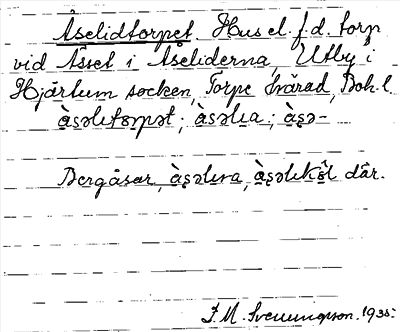 Åselidtorpet. Hus el. f.d. torp
vid Åsset i Åseliderna, Utby i
Hjärtum socken, Torpe härad, Boh. l.
à̀səlıtɔrpət; à̀səlıa; à̀sə-
Bergåsar, à̀səlına, à̀səlıkɔ̂l där.
F. M. Svenungsson. 1935.